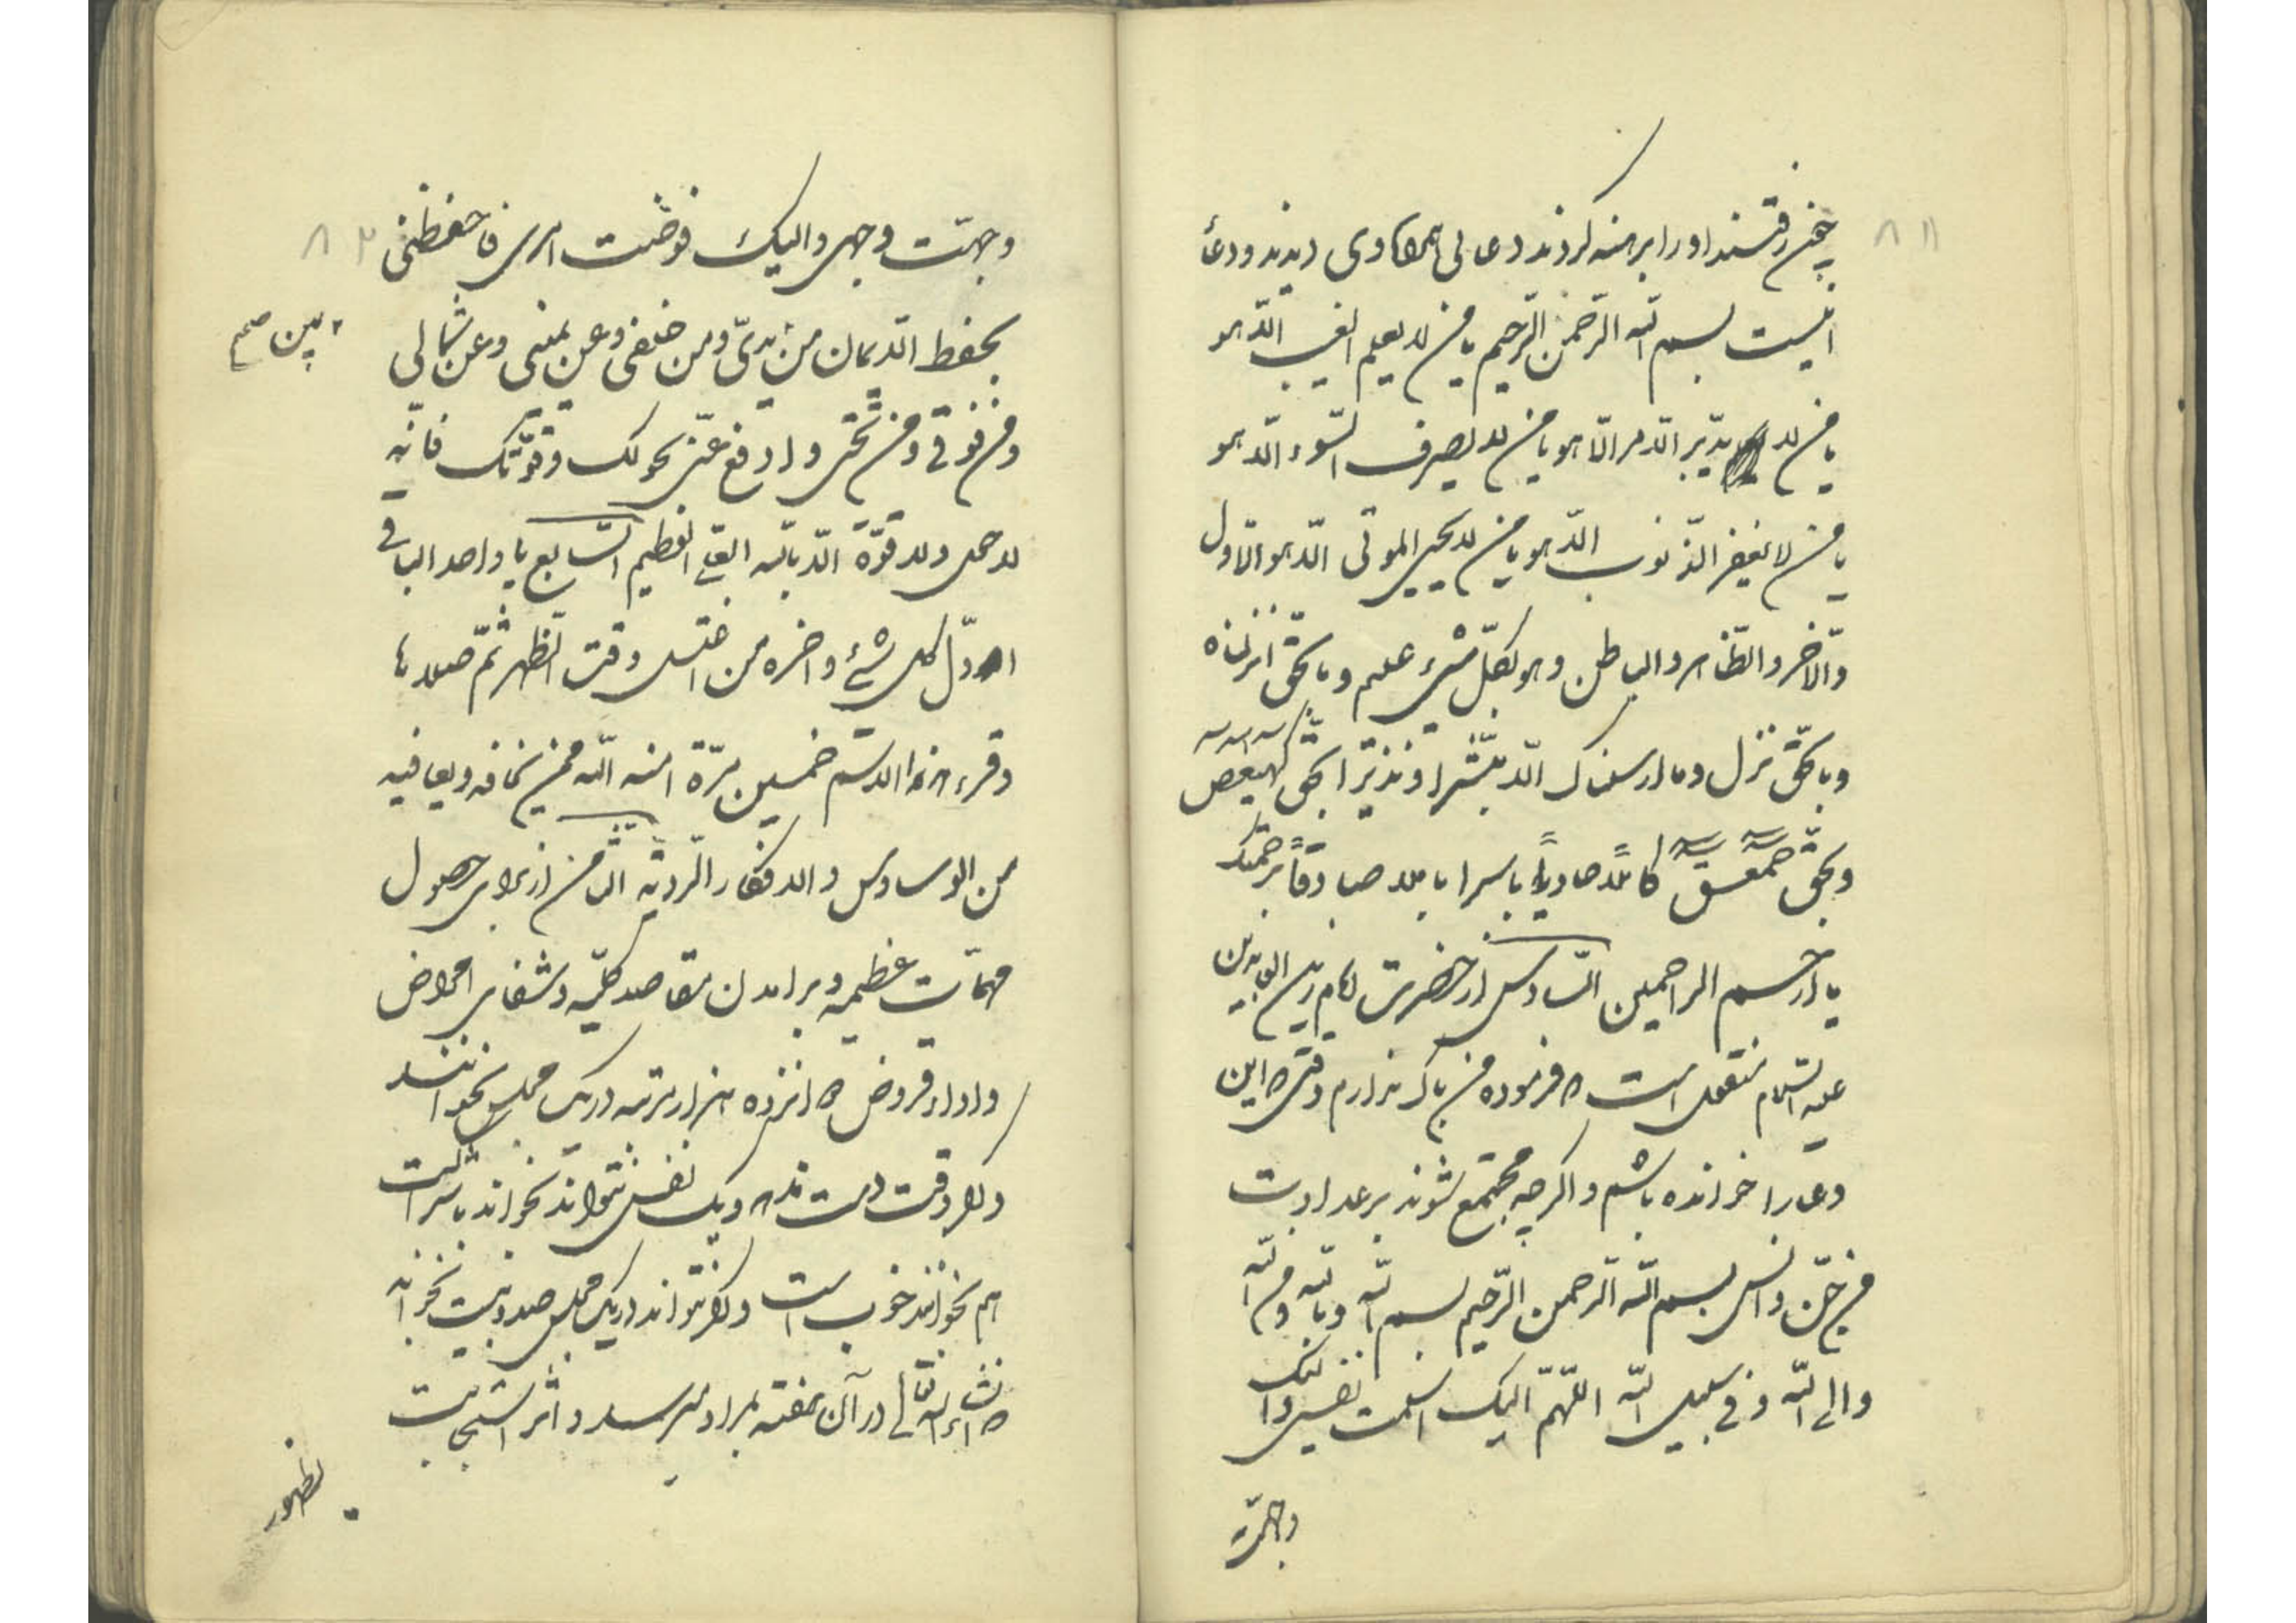 ۸۱
چون رفتند او را برهنه کردند دعائی همراه وی دیدند و دعا
اینست بسم الله الرّحمن الرّحیم یا من لا یعلم الغیب الّا هو
یا من لا یدبّر الامر الّا هو یا من لا یصرف السّوء الّا هو
یا من لا یغفر الذّنوب الّا هو یا من لا یحیی الموتی الّا هو الاوّل
والآخر والظّاهر والباطن وهو بکلّ شیء علیم وبالحقّ انزلناه
وبالحقّ نزل وما ارسلناک الّا مبشّرا ونذیرا بحقّ کهیعص
وبحقّ حمعسق کافیاً هادیاً یا صادقاً برحمتک
یا ارحم الراحمین السّادس از حضرت امام زین العابدین
علیه السّلام منقول است که فرموده من باک ندارم وقتی که این
دعا را خوانده باشم و اگرچه مجتمع شوند بر عداوت
من جنّ و انس بسم الله الرّحمن الرّحیم بسم الله وبالله ومن الله
والی الله وفی سبیل الله اللّهمّ الیک اسلمت نفسی والیک
وجّهت
۸۲
وجّهت وجهی والیک فوّضت امری فاحفظنی
بحفظ الایمان من یدیّ ومن خلفی وعن یمینی وعن شمالی
بین صح
ومن فوقی ومن تحتی وادفع عنّی بحولک وقوّتک فانّه
لا حول ولا قوّة الّا بالله العلی العظیم السّابع یا واحد الباقی
اوّل کل شیء وآخره من اغتسل وقت الظّهر ثمّ صلاها
وقرء هذا الاسم خمسین مرّة امنه الله ممّن یخافه ویعافیه
من الوساوس والافکار الردیّه الثّامن از برای حصول
مهمّات عظیمه و برامدن مقاصد کلیّه و شفای امراض
و اداء قروض پانزده هزار مرتبه در یک مجلس بخوانند
و اگر وقت نداشته و یک نفس نتواند بخواند باشراکت
هم بخوانند خوب است و اگر نتواند در یک مجلس صد و بیست بخواند
که انشاء الله تعالی در آن هفته بمراد میرسد و اثر استجابت
بظهور